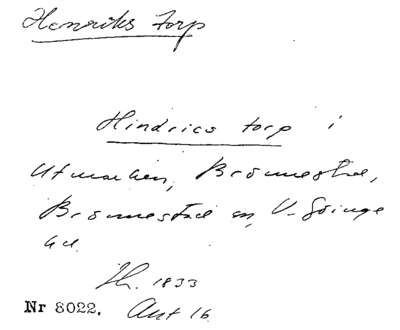 Henriks torp
Hindrics torp i
Utmarken, Brönnestad,
Brönnestad sn, V. Göinge
hd.
Jh. 1833
Nr 8022. Akt 16